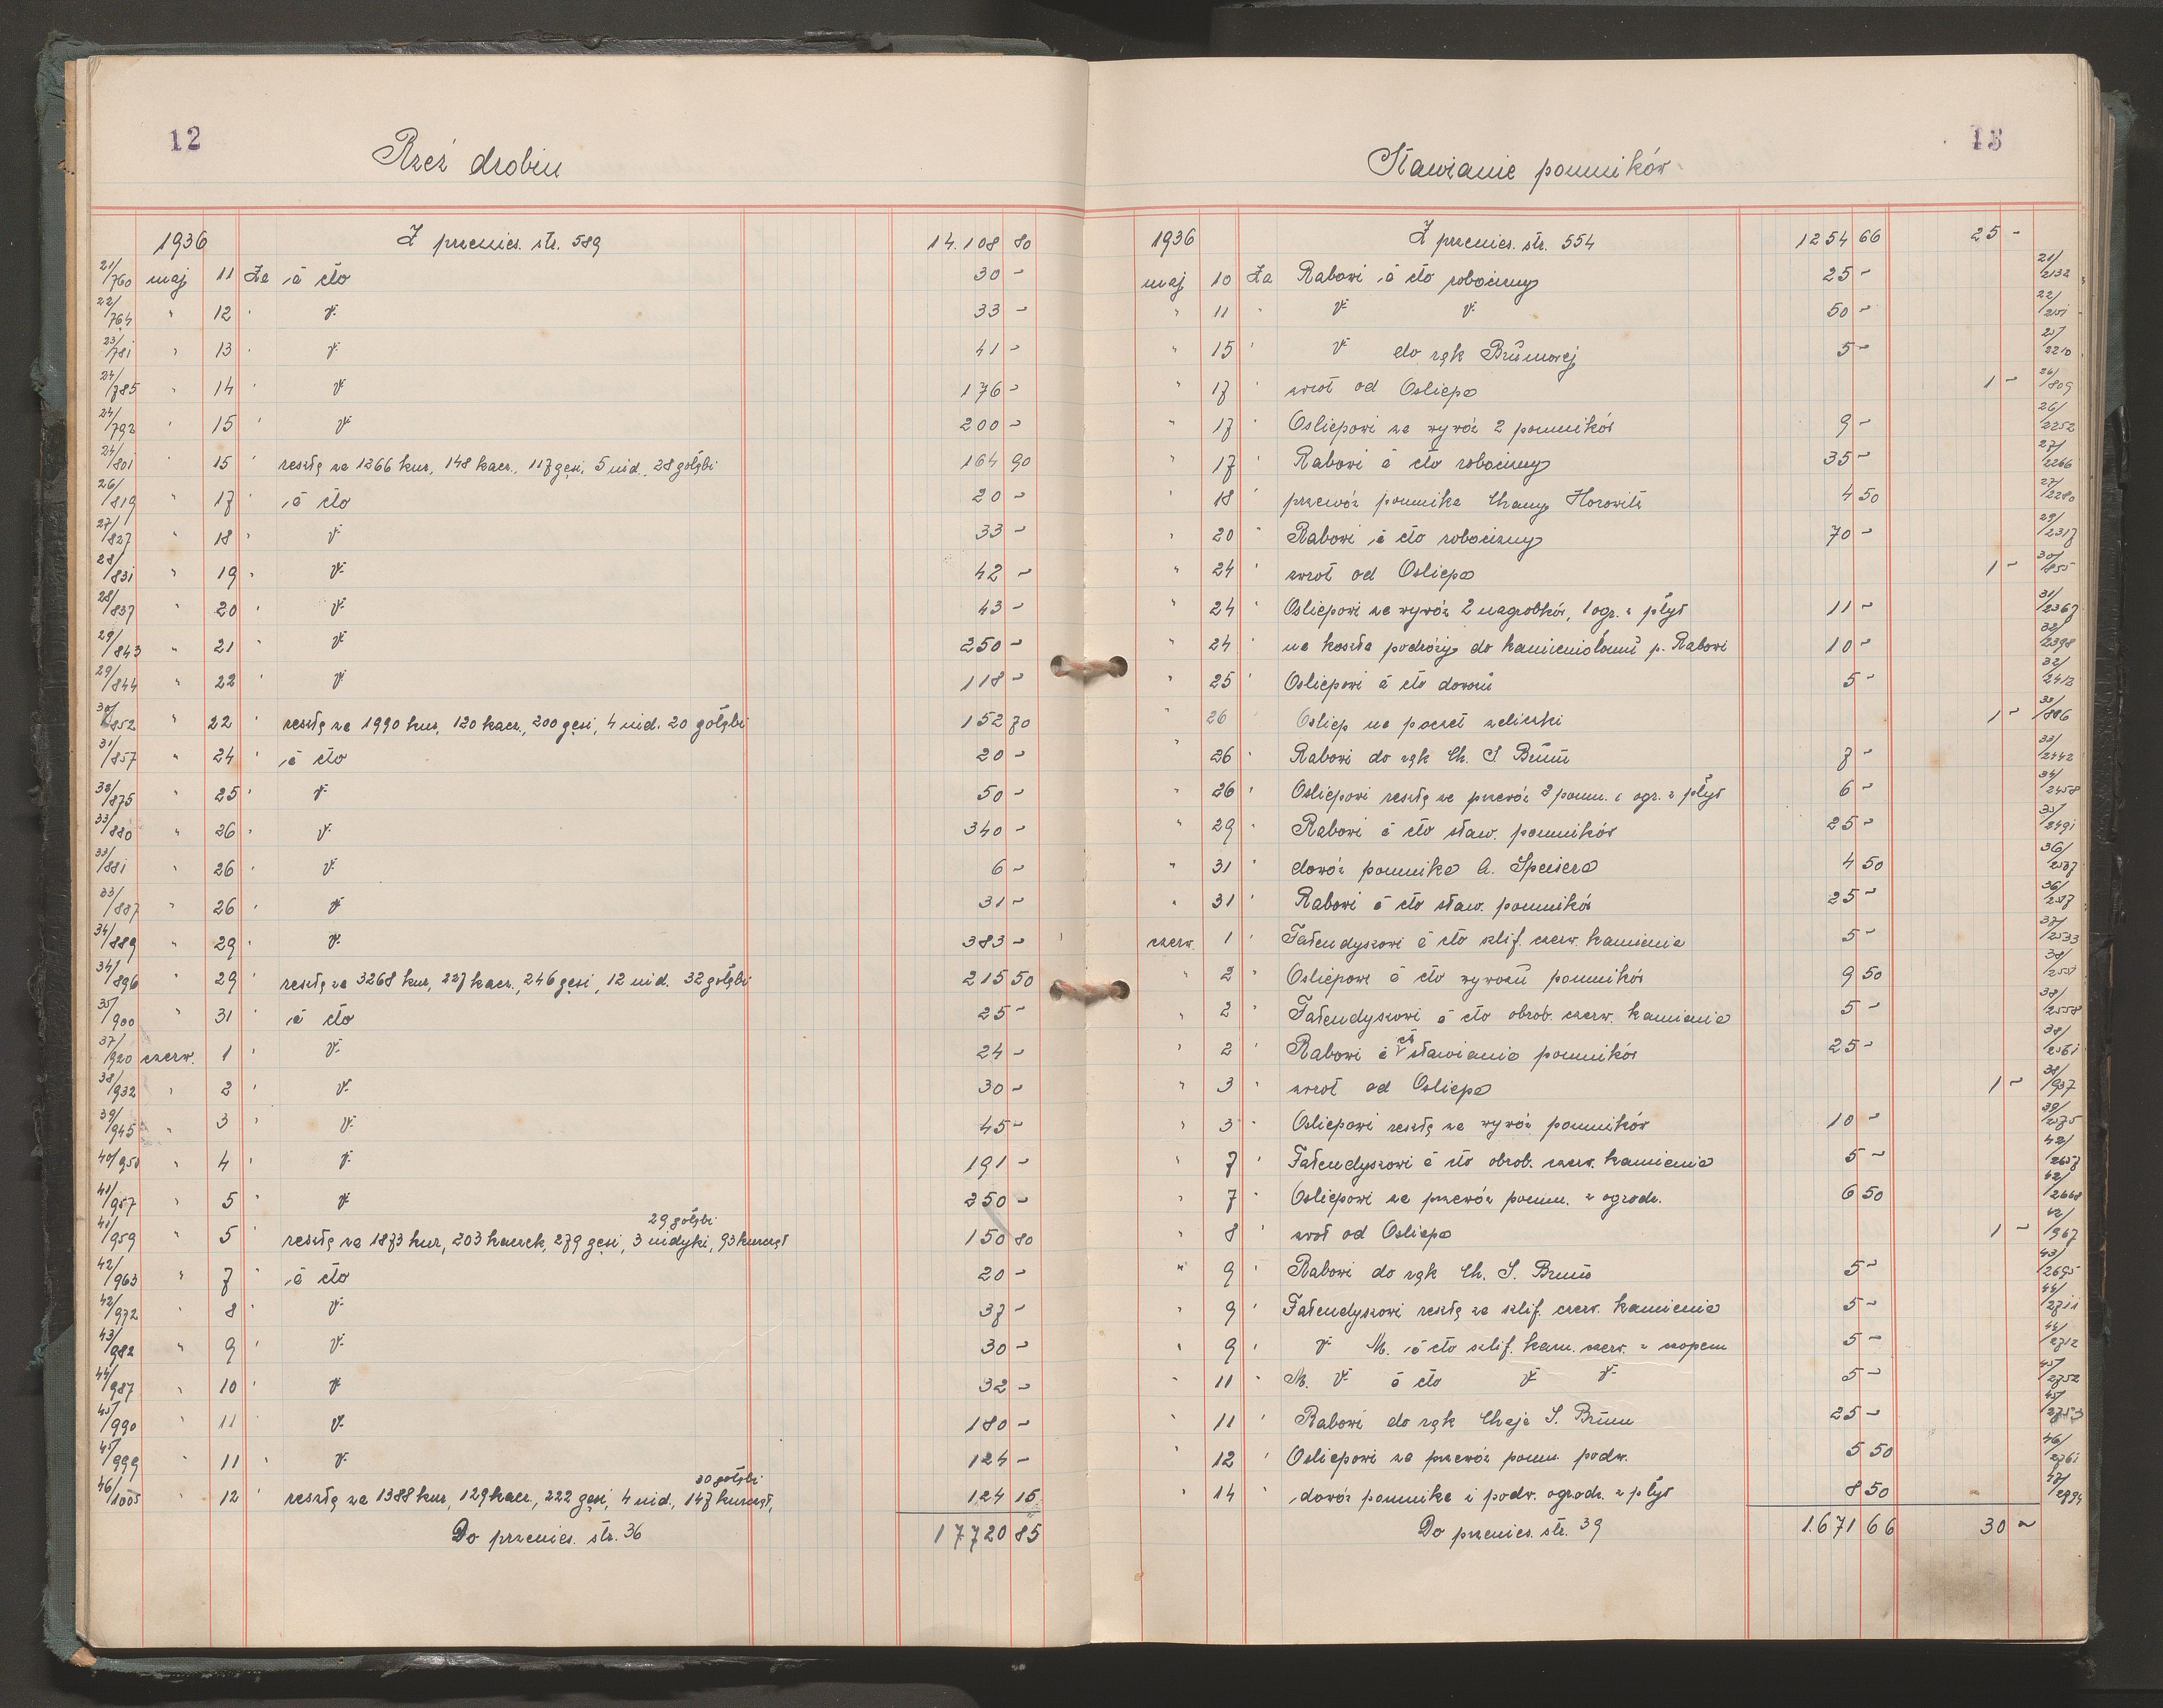 12
Rzeź drobiu
1936 Z przenies. str. 589 14.108 80
21/760 maj 11 Za à cto 30 -
22/764 " 12 " V. 33 -
23/781 " 13 " V. 41 -
24/785 " 14 " V. 176 -
24/792 " 15 " V. 200 -
24/801 " 15 " resztę za 1266 kur, 148 kacz., 117 gęsi, 5 ind., 28 gołębi 164 90
26/819 " 17 " à cto 20 -
27/827 " 18 " V. 33 -
28/831 " 19 " V. 42 -
28/837 " 20 " V. 43 -
29/843 " 21 " V. 250 -
29/844 " 22 " V. 118 -
30/852 " 22 " resztę za 1990 kur, 120 kacz., 200 gęsi, 4 ind. 20 gołębi 152 70
31/857 " 24 " à cto 20 -
32/875 " 25 " V. 50 -
33/880 " 26 " V. 340 -
33/881 " 26 " V. 6 -
33/887 " 26 " V. 31 -
34/889 " 29 " V. 383 -
34/896 " 29 " resztę za 3268 kur, 227 kacz., 246 gęsi, 12 ind. 32 gołębi 215 50
35/900 " 31 " à cto 25 -
37/920 czerw. 1 " V. 24 -
38/932 " 2 " V. 30 -
39/945 " 3 " V. 45 -
40/950 " 4 " V. 191 -
41/957 " 5 " V. 250 -
29 gołębi
41/959 " 5 " resztę za 1873 kur, 203 kaczek, 279 gęsi, 3 indyki, 93 kurcząt 150 80
42/963 " 7 " à cto 20 -
42/972 " 8 " V. 37 -
43/982 " 9 " V. 30 -
44/987 " 10 " V. 32 -
45/990 " 11 " V. 180 -
45/999 " 11 " V. 124 -
30 gołębi
46/1005 " 12 " resztę za 1388 kur, 129 kacz., 222 gęsi, 4 ind., 147 kurcząt, 124 15
Do przenies. str. 36 17720 85
13
Stawianie pomników
1936 Z przenies. str. 554 1254 66 25 -
maj 10 Za Rabowi à cto robocizny 25 - 21/2132
" 11 " V. V. 50 - 22/2151
" 15 " V. do rąk Brümowej 5 - 25/2210
" 17 " zwrot od Osliepa 1 - 26/809
" 17 " Osliepowi za wywóz 2 pomników 9 - 26/2252
" 17 " Rabowi à cto robocizny 35 - 27/2266
" 18 " przewóz pomnika Chany Horowitz 4 50 27/2280
" 20 " Rabowi à cto robocizny 70 - 29/2317
" 24 " zwrot od Osliepa 1 - 30/855
" 24 " Osliepowi za wywóz 2 nagrobków, 1 ogr. z płyt 11 - 31/2367
" 24 " na koszta podróży do kamieniołomu p. Rabowi 10 - 32/2398
" 25 " Osliepowi à cto dowozu 5 - 32/2413
" 26 Osliep na poczet zaliczki 1 - 33/886
" 26 " Rabowi do rąk Ch. S Brüm 7 - 33/2442
" 26 " Osliepowi resztę za przewóz 2 pomn. i ogr. z płyt 6 - 34/2458
" 29 " Rabowi à cto staw. pomników 25 - 35/2491
" 31 " dowóz pomnika A. Speisera 4 50 36/2517
" 31 " Rabowi à cto staw. pomników 25 - 36/2517
czerw. 1 " Fatendyszowi à cto szlif. czerw. kamienia 5 - 37/2533
" 2 " Osliepowi à cto wywozu pomników 9 50 38/2551
" 2 " Fatendyszowi à cto obrob. czerw. kamienia 5 - 38/2558
" 2 " Rabowi à cto stawiania pomników 25 - 38/2561
" 3 " zwrot od Osliepa 1 - 38/937
" 3 " Osliepowi resztę za wywóz pomników 10 - 39/2575
" 7 " Fatendyszowi à cto obrob. czerw. kamienia 5 - 42/2657
" 7 " Osliepowi za przewóz pomn. z ogrodz. 6 50 42/2668
" 8 " zwrot od Osliepa 1 - 42/967
" 9 " Rabowi do rąk Ch. S. Brum 5 - 43/2695
" 9 " Fatendyszowi resztę za szlif. czerw. kamienia 5 - 44/2711
" 9 " V. M. à cto szlif. kam. czerw. z czopem 5 - 44/2712
" 11 " M. V. à cto V. V. 5 - 45/2752
" 11 " Rabowi do rąk Chaje S. Brüm 25 - 45/2753
" 12 " Osliepowi za przewóz pomn. podw. 5 50 46/2761
" 14 " dowóz pomnika i podw. ogrodz. z płyt 8 50 47/2794
Do przenies. str. 39 1.671 66 30 -